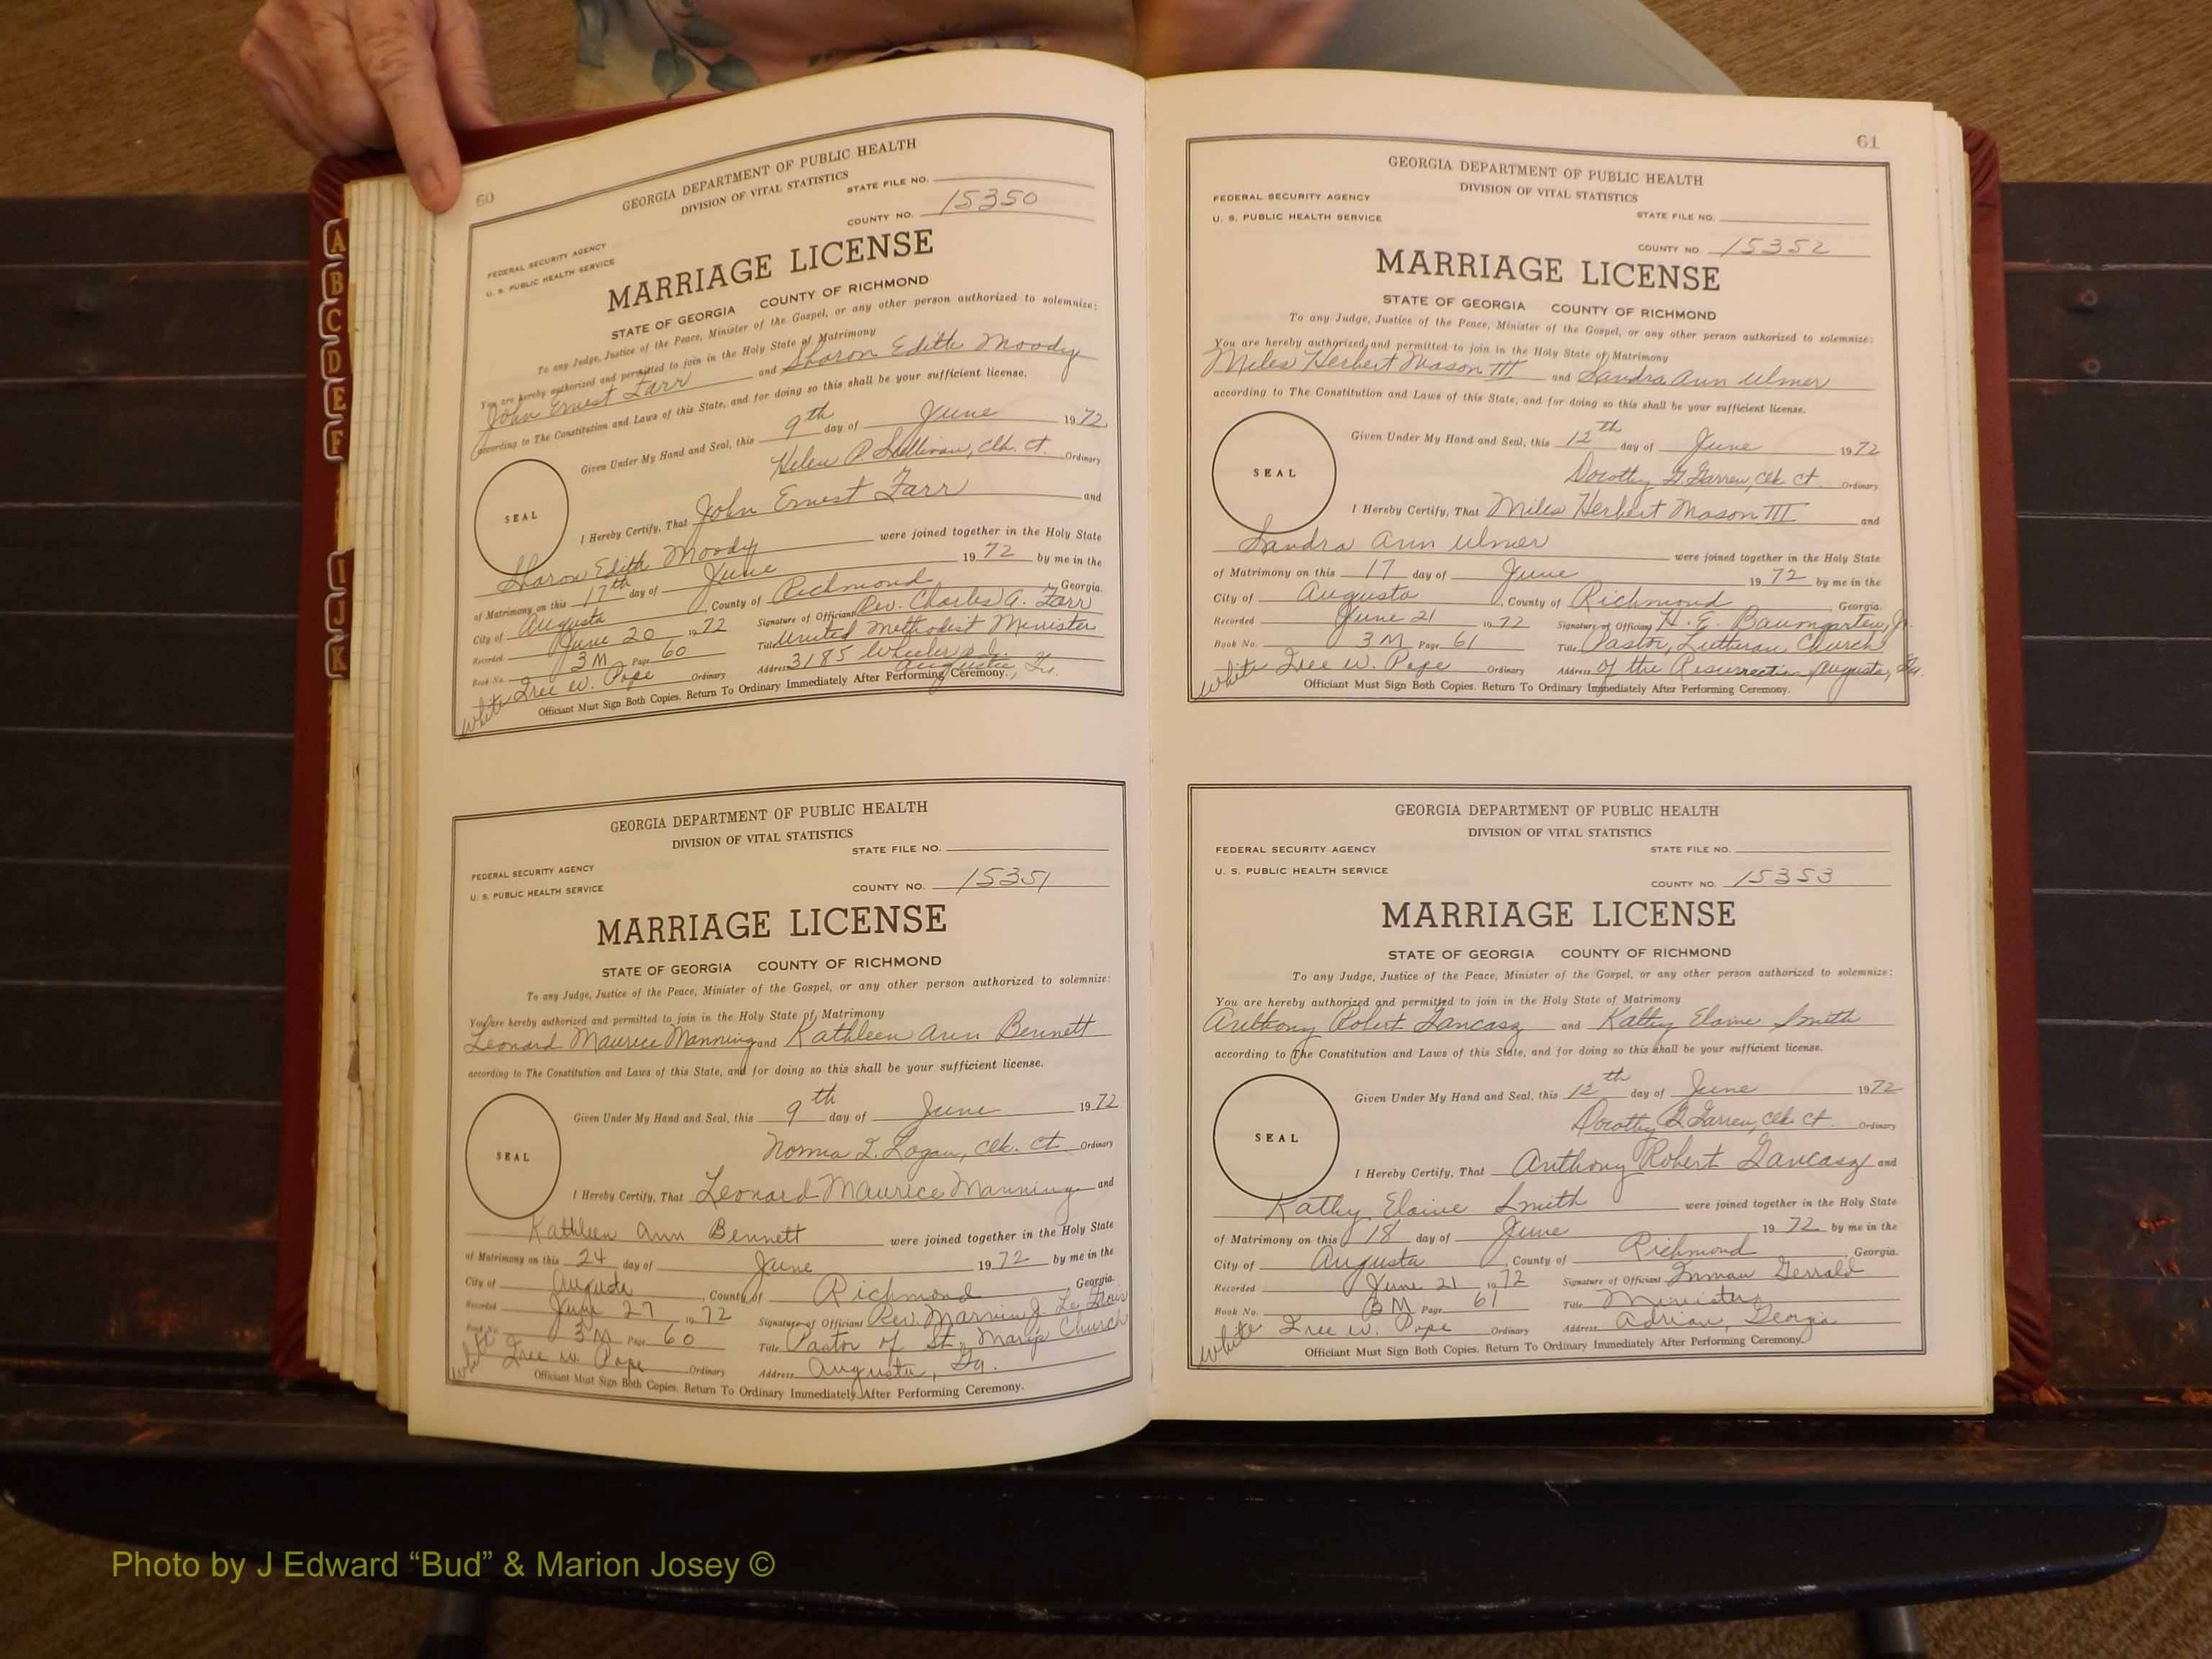 60
GEORGIA DEPARTMENT OF PUBLIC HEALTH
DIVISION OF VITAL STATISTICS
STATE FILE NO.
COUNTY NO. 15350
FEDERAL SECURITY AGENCY
U. S. PUBLIC HEALTH SERVICE
MARRIAGE LICENSE
STATE OF GEORGIA COUNTY OF RICHMOND
To any Judge, Justice of the Peace, Minister of the Gospel, or any other person authorized to solemnize:
You are hereby authorized and permitted to join in the Holy State of Matrimony
John Ernest Farr and Sharon Edith Moody
according to The Constitution and Laws of this State, and for doing so this shall be your sufficient license.
Given Under My Hand and Seal, this 9th day of June 1972
Helen P. Sullivan, Clk. Ct. Ordinary
SEAL
I Hereby Certify, That John Ernest Farr and
Sharon Edith Moody were joined together in the Holy State
of Matrimony on this 17th day of June 1972 by me in the
City of Augusta, County of Richmond, Georgia.
Recorded June 20 1972 Signature of Officiant Rev. Charles A. Farr
Book No. 3M Page 60 Title United Methodist Minister
White W. Pope Ordinary Address 3185 Wheeler Rd.
Augusta, Ga.
Officiant Must Sign Both Copies. Return To Ordinary Immediately After Performing Ceremony.
GEORGIA DEPARTMENT OF PUBLIC HEALTH
DIVISION OF VITAL STATISTICS
STATE FILE NO.
FEDERAL SECURITY AGENCY
U. S. PUBLIC HEALTH SERVICE
COUNTY NO. 15351
MARRIAGE LICENSE
STATE OF GEORGIA COUNTY OF RICHMOND
To any Judge, Justice of the Peace, Minister of the Gospel, or any other person authorized to solemnize:
You are hereby authorized and permitted to join in the Holy State of Matrimony
Leonard Maurice Manning and Kathleen Ann Bennett
according to The Constitution and Laws of this State, and for doing so this shall be your sufficient license.
Given Under My Hand and Seal, this 9th day of June 1972
Norma Logan, Clk. Ct Ordinary
SEAL
I Hereby Certify, That Leonard Maurice Manning and
Kathleen Ann Bennett were joined together in the Holy State
of Matrimony on this 24 day of June 1972 by me in the
City of Augusta, County of Richmond Georgia.
Recorded June 27 1972 Signature of Officiant Rev.
Book No. 3M Page 60 Title Pastor of St. Mary's Church
White W. Pope Ordinary Address Augusta, Ga.
Officiant Must Sign Both Copies. Return To Ordinary Immediately After Performing Ceremony.
61
GEORGIA DEPARTMENT OF PUBLIC HEALTH
DIVISION OF VITAL STATISTICS
FEDERAL SECURITY AGENCY
U. S. PUBLIC HEALTH SERVICE
STATE FILE NO.
COUNTY NO. 15352
MARRIAGE LICENSE
STATE OF GEORGIA COUNTY OF RICHMOND
To any Judge, Justice of the Peace, Minister of the Gospel, or any other person authorized to solemnize:
You are hereby authorized and permitted to join in the Holy State of Matrimony
Miles Herbert Mason III and Sandra Ann Ulmer
according to The Constitution and Laws of this State, and for doing so this shall be your sufficient license.
Given Under My Hand and Seal, this 12th day of June 1972
Dorothy Clk. Ct. Ordinary
SEAL
I Hereby Certify, That Miles Herbert Mason III and
Sandra Ann Ulmer were joined together in the Holy State
of Matrimony on this 17 day of June 1972 by me in the
City of Augusta, County of Richmond, Georgia
Recorded June 21 1972 Signature of Officiant H. E. Baumgarten, Jr.
Book No. 3M Page 61 Title Pastor, Lutheran Church
White W. Pope Ordinary Address of the Resurrection, Augusta, Ga.
Officiant Must Sign Both Copies. Return To Ordinary Immediately After Performing Ceremony.
GEORGIA DEPARTMENT OF PUBLIC HEALTH
DIVISION OF VITAL STATISTICS
FEDERAL SECURITY AGENCY
STATE FILE NO.
U. S. PUBLIC HEALTH SERVICE
COUNTY NO. 15353
MARRIAGE LICENSE
STATE OF GEORGIA COUNTY OF RICHMOND
To any Judge, Justice of the Peace, Minister of the Gospel, or any other person authorized to solemnize:
You are hereby authorized and permitted to join in the Holy State of Matrimony
Anthony Robert Gancasz and Kathy Elaine Smith
according to The Constitution and Laws of this State, and for doing so this shall be your sufficient license.
Given Under My Hand and Seal, this 12th day of June 1972
Dorothy Clk. Ct. Ordinary
SEAL
I Hereby Certify, That Anthony Robert Gancasz and
Kathy Elaine Smith were joined together in the Holy State
of Matrimony on this 18 day of June 1972 by me in the
City of Augusta, County of Richmond, Georgia.
Recorded June 21 1972 Signature of Officiant Inman Gerrald
Book No. 3M Page 61 Title Minister
White W. Pope Ordinary Address Adrian, Georgia
Officiant Must Sign Both Copies. Return To Ordinary Immediately After Performing Ceremony.
A
B
C
D
E
F
I
J
K
Photo by J Edward “Bud” & Marion Josey ©